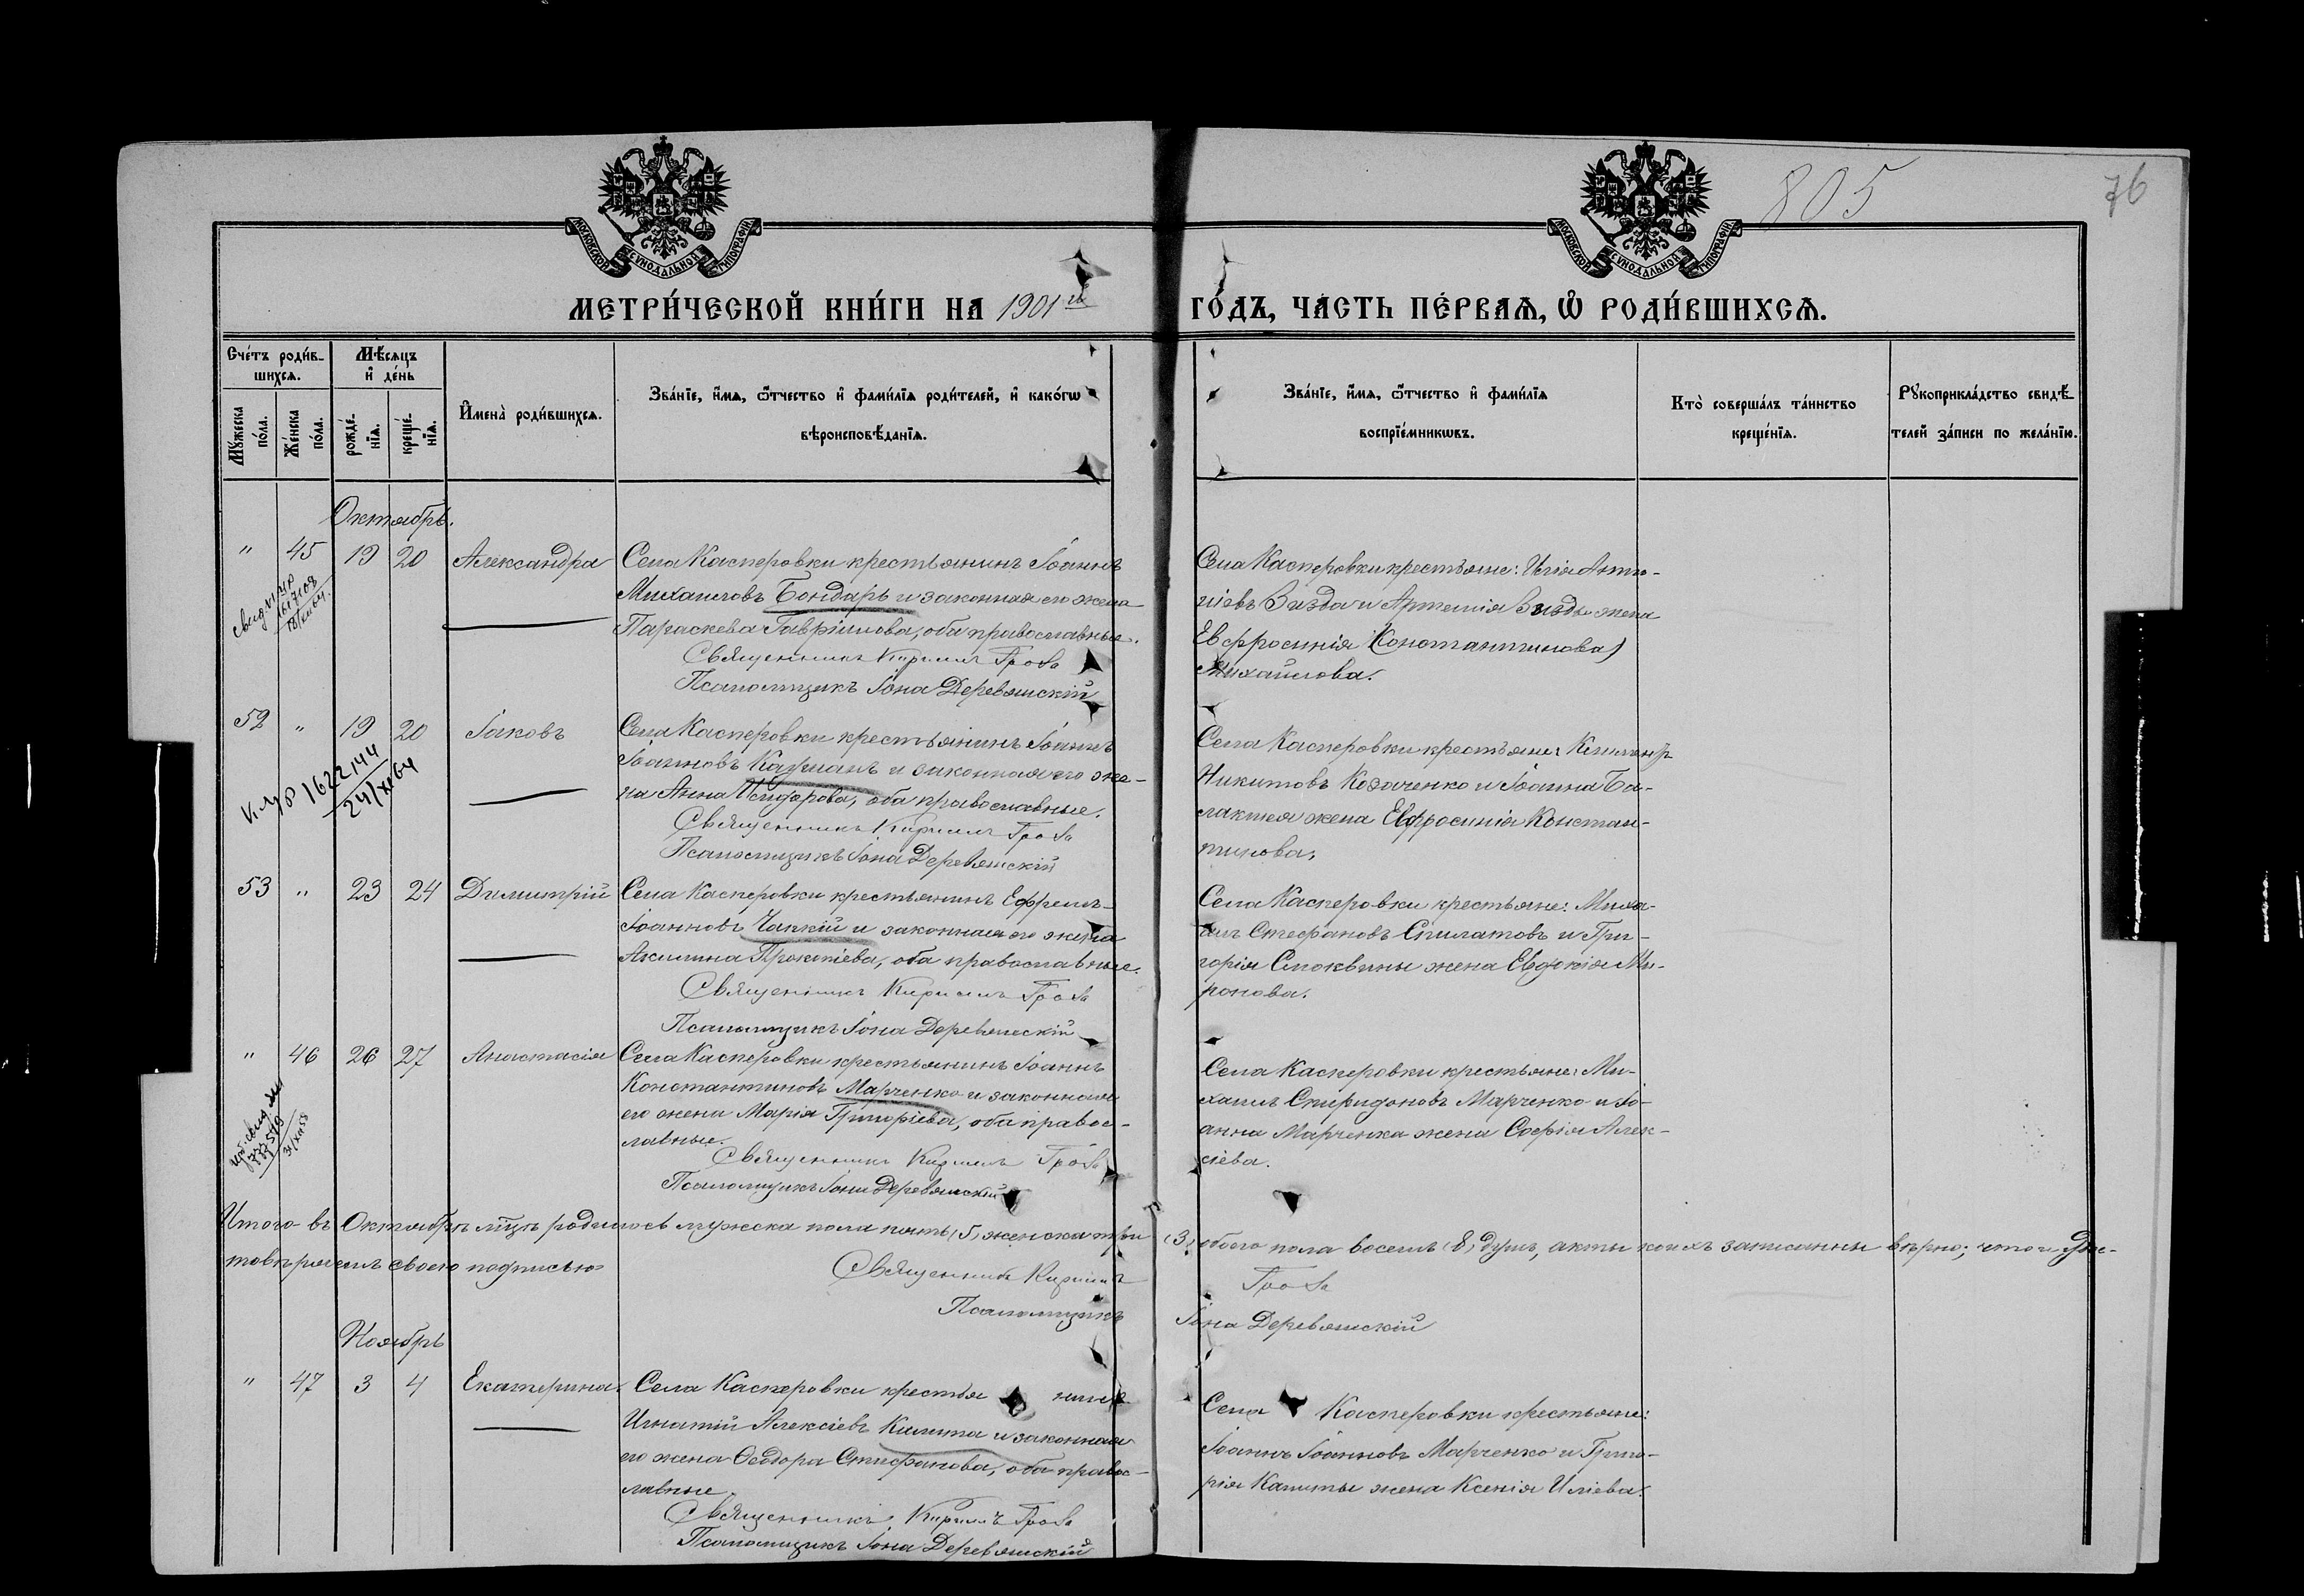 805
76
МОСКОВСКОЙ СѴНОДАЛЬНОЙ ТИПОГРАФІИ
МОСКОВСКОЙ СѴНОДАЛЬНОЙ ТИПОГРАФІИ
МЕТРИ́ЧЕСКОЙ КНИ́ГИ НА 1901й ГО́ДЪ, ЧА́СТЬ ПЕ́РВАѦ, Ѡ҆ РОДИ́ВШИХСѦ.
Сче́тъ роди́в-
шихсѧ.
Мѣ́сѧцъ
и҆ де́нь
Мꙋ́жеска
по́ла.
Же́нска
по́ла.
рожде́-
нїѧ.
креще́-
нїѧ.
И҆мена̀ роди́вшихсѧ.
Зва́нїе, и҆́мѧ, ѻ҆́тчество и҆ фами́лїѧ роди́телей, и҆ како́гѡ
вѣроисповѣ́данїѧ.
Зва́нїе, и҆́мѧ, ѻ҆́тчество и҆ фами́лїѧ
воспрїе́мникѡвъ.
Кто̀ соверша́лъ та́инство
креще́нїѧ.
Рꙋкоприкла́дство свидѣ́-
телей за́писи по жела́нїю.
Октябрь.
" 45 19 20 Александра
Села Касперовки крестьянинъ Іоаннъ
Михаиловъ Бондарь и законная его жена
Параскева Гавріилова, оба православные.
Священникъ Кирилъ
Псаломщикъ Іона Деревянскій
Села Касперовки крестьяне: Илія
Визда и Артемія Визды жена
Евфросинія (Константинова)
Михайлова.
52 " 19 20 Іаковъ
1622144
24/XI 64
Села Касперовки крестьянинъ Іоаннъ
Іоанновъ и законная его же-
на Анна Исидорова, оба православные.
Священникъ Кирилъ
Псаломщикъ Іона Деревянскій
Села Касперовки крестьяне:
Никитовъ Козаченко и Іоанна Ба-
лакшея жена Евфросинія Констан-
тинова.
53 " 23 24 Димитрій
Села Касперовки крестьянинъ Ефремъ
Іоанновъ Чапкій и законная его жена
Акилина Прокопіева, оба православные.
Священникъ Кирилъ
Псаломщикъ Іона Деревянскій
Села Касперовки крестьяне: Миха-
илъ Стефановъ и Гри-
горія Смоквины жена Евдокія Ми-
ронова.
" 46 26 27 Анастасія
Села Касперовки крестьянинъ Іоаннъ
Константиновъ Марченко и законная
его жена Марія Григоріева, оба правос-
лавные.
Священникъ Кирилъ
Псаломщикъ Іона Деревянскій
Села Касперовки крестьяне: Ми-
хаилъ Спиридоновъ Марченко и Іо-
анна Марченка жена Софія Алек-
сіева.
Итого въ Октябрѣ мцѣ родилось мужска пола пять (5) женска три (3) обоего пола восемъ (8) душъ, акты коихъ записанны вѣрно; что и удос-
товѣряемъ своею подписью
Священникъ Кирилъ
Псаломщикъ Іона Деревянскій
Ноябрь
" 47 3 4 Екатерина
Села Касперовки крестья нинъ
Игнатій Алексіевъ и законная
его жена Ѳеодора Стефанова, оба правос-
лавные.
Священникъ Кирилъ
Псаломщикъ Іона Деревянскій
Села Касперовки крестьяне:
Іоаннъ Іоанновъ Марченко и Григо-
рія жена Ксенія Иліева.